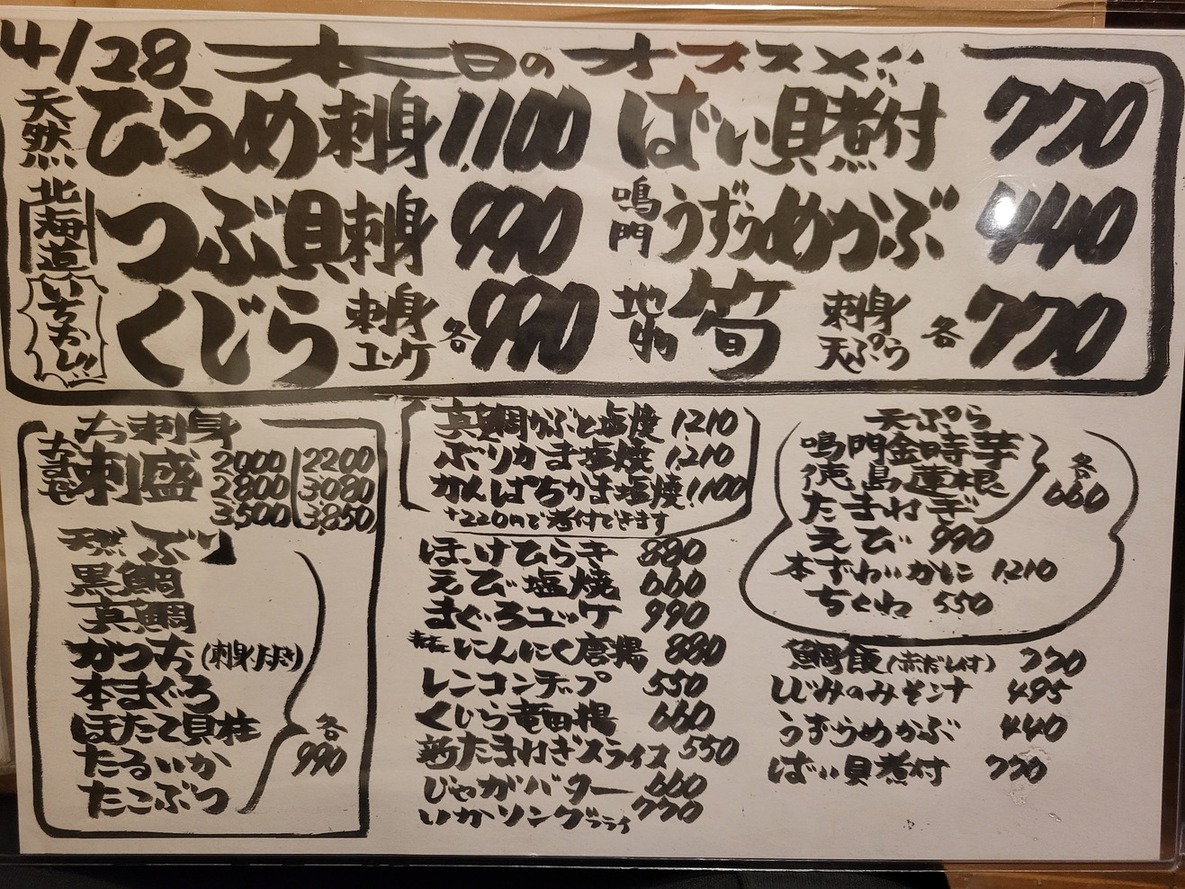 4/28 本日のオススメ
天然 ひらめ刺身 1,100
北海道 つぶ貝刺身 990
いちおし!! くじら 刺身 ユッケ 各990
ばい貝煮付 770
鳴門 うずうめかぶ 440
地物 筍 刺身 天ぷら 各770
お刺身
おまかせ 刺盛 2000 2200
2800 3080
3,500 3,850
天然ぶり
黒鯛
真鯛
かつお(刺身/たたき)
本まぐろ
ほたて貝柱
たるいか
たこぶつ
各990
真鯛かぶと塩焼 1210
ぶりかま塩焼 1,210
かんぱちかま塩焼 1,100
+220円で煮付できます
ほっけひらき 880
えび塩焼 660
まぐろユッケ 990
にんにく唐揚 880
レンコンチップ 550
くじら竜田揚 660
新たまねぎスライス 550
じゃがバター 660
いかソングフライ 770
天ぷら
鳴門金時芋
徳島蓮根
たまねぎ
各660
えび 990
本ずわいかに 1,210
ちくわ 550
鯛飯(赤だし付) 770
しじみのみそ汁 495
うずうめかぶ 440
ばい貝煮付 770